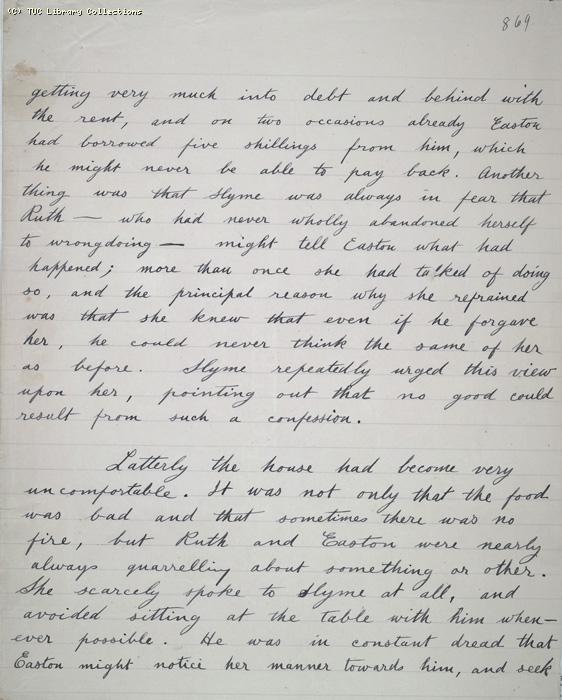 (C) TUC Library Collections
869
getting very much into debt and behind with
the rent, and on two occasions already Easton
had borrowed five shillings from him, which
he might never be able to pay back. Another
thing was that Slyme was always in fear that
Ruth — who had never wholly abandoned herself
to wrongdoing — might tell Easton what had
happened; more than once she had talked of doing
so, and the principal reason why she refrained
was that she knew that even if he forgave
her, he could never think the same of her
as before. Slyme repeatedly urged this view
upon her, pointing out that no good could
result from such a confession.
Latterly the house had become very
uncomfortable. It was not only that the food
was bad and that sometimes there was no
fire, but Ruth and Easton were nearly
always quarrelling about something or other.
She scarcely spoke to Slyme at all, and
avoided sitting at the table with him when-
ever possible. He was in constant dread that
Easton might notice her manner towards him, and seek